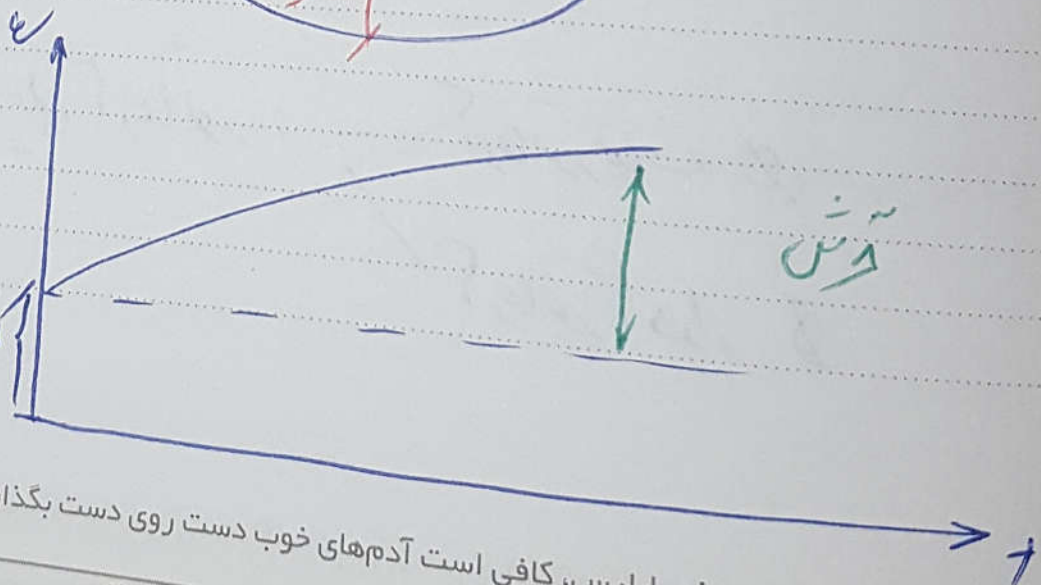 ε
خزش
t
کافی است آدم‌های خوب دست روی دست بگذا